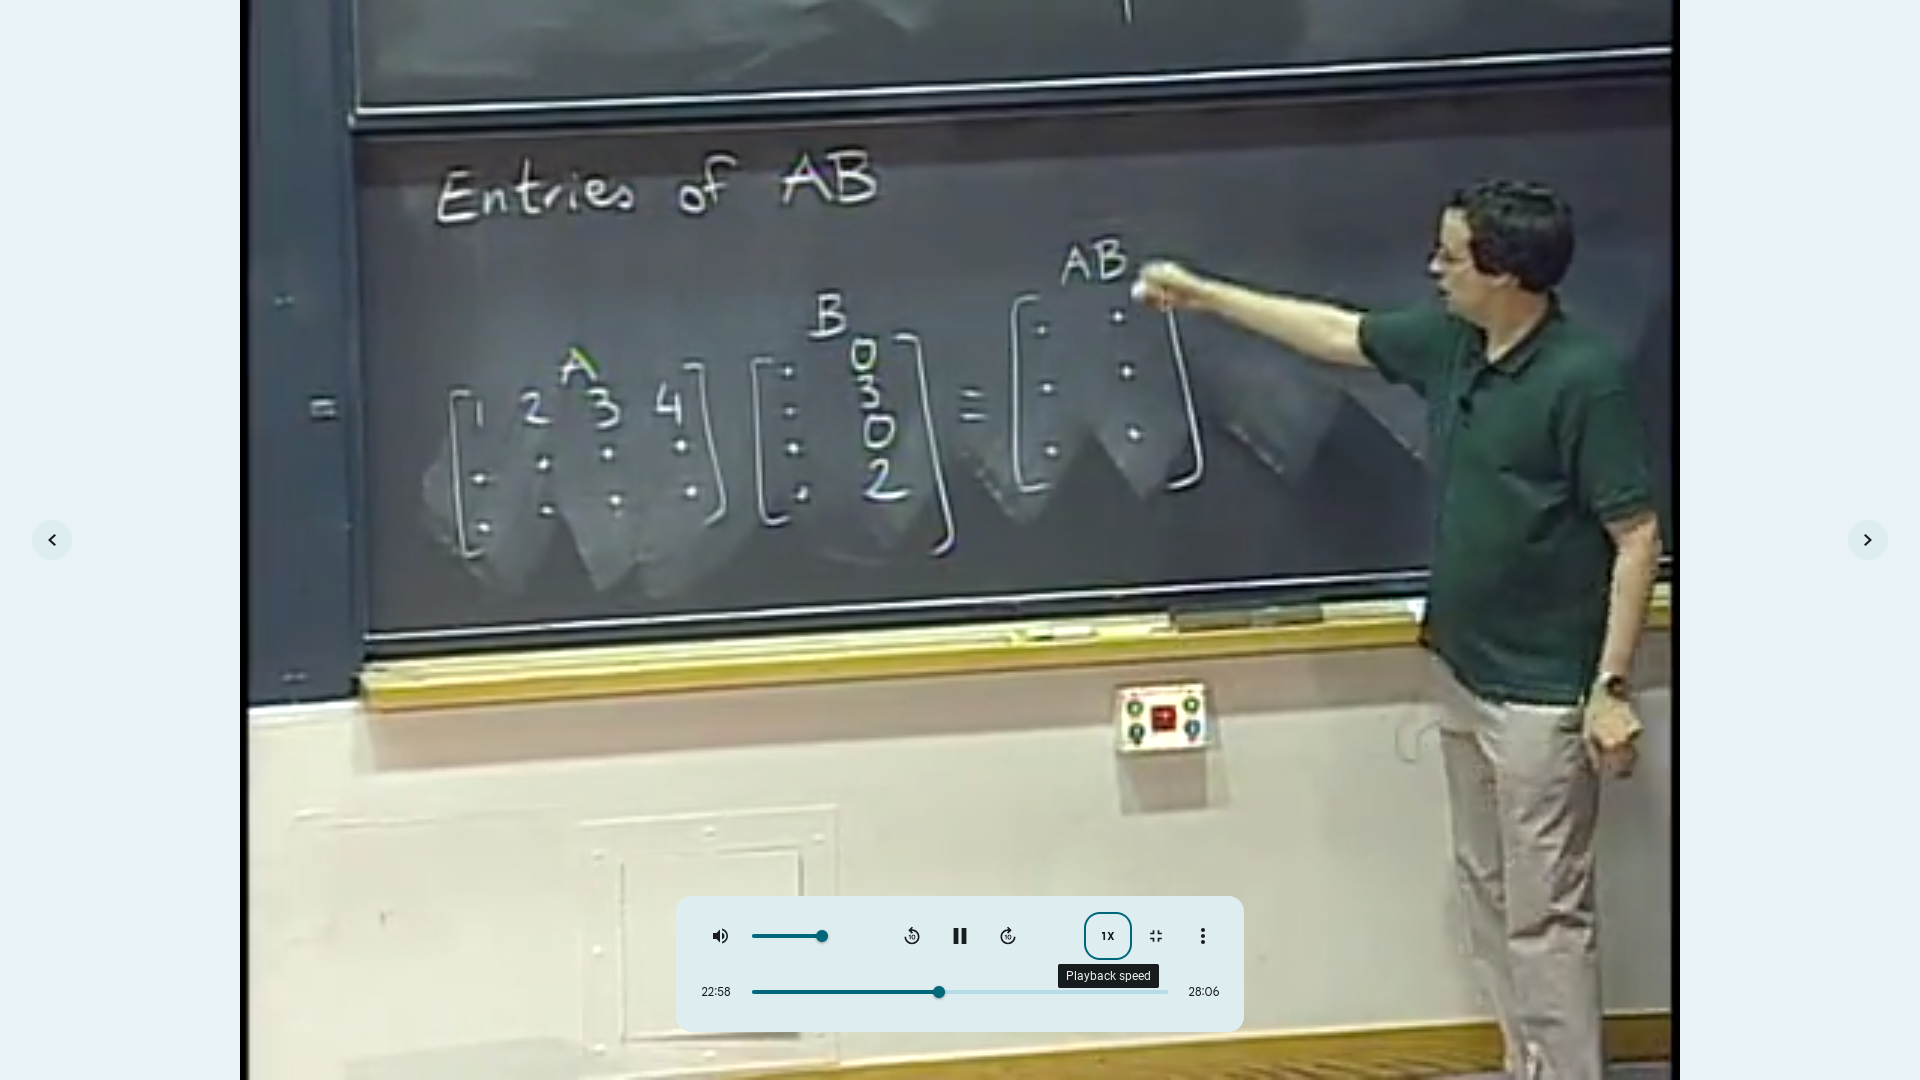 Entries of AB
AB
B
A
=
[1 2 3 4] [. 0] = [. .]
[. . . .] [. 3] [. .]
[. . . .] [. 0] [. .]
[. 2]
10 10 1X
Playback speed
22:58 28:06